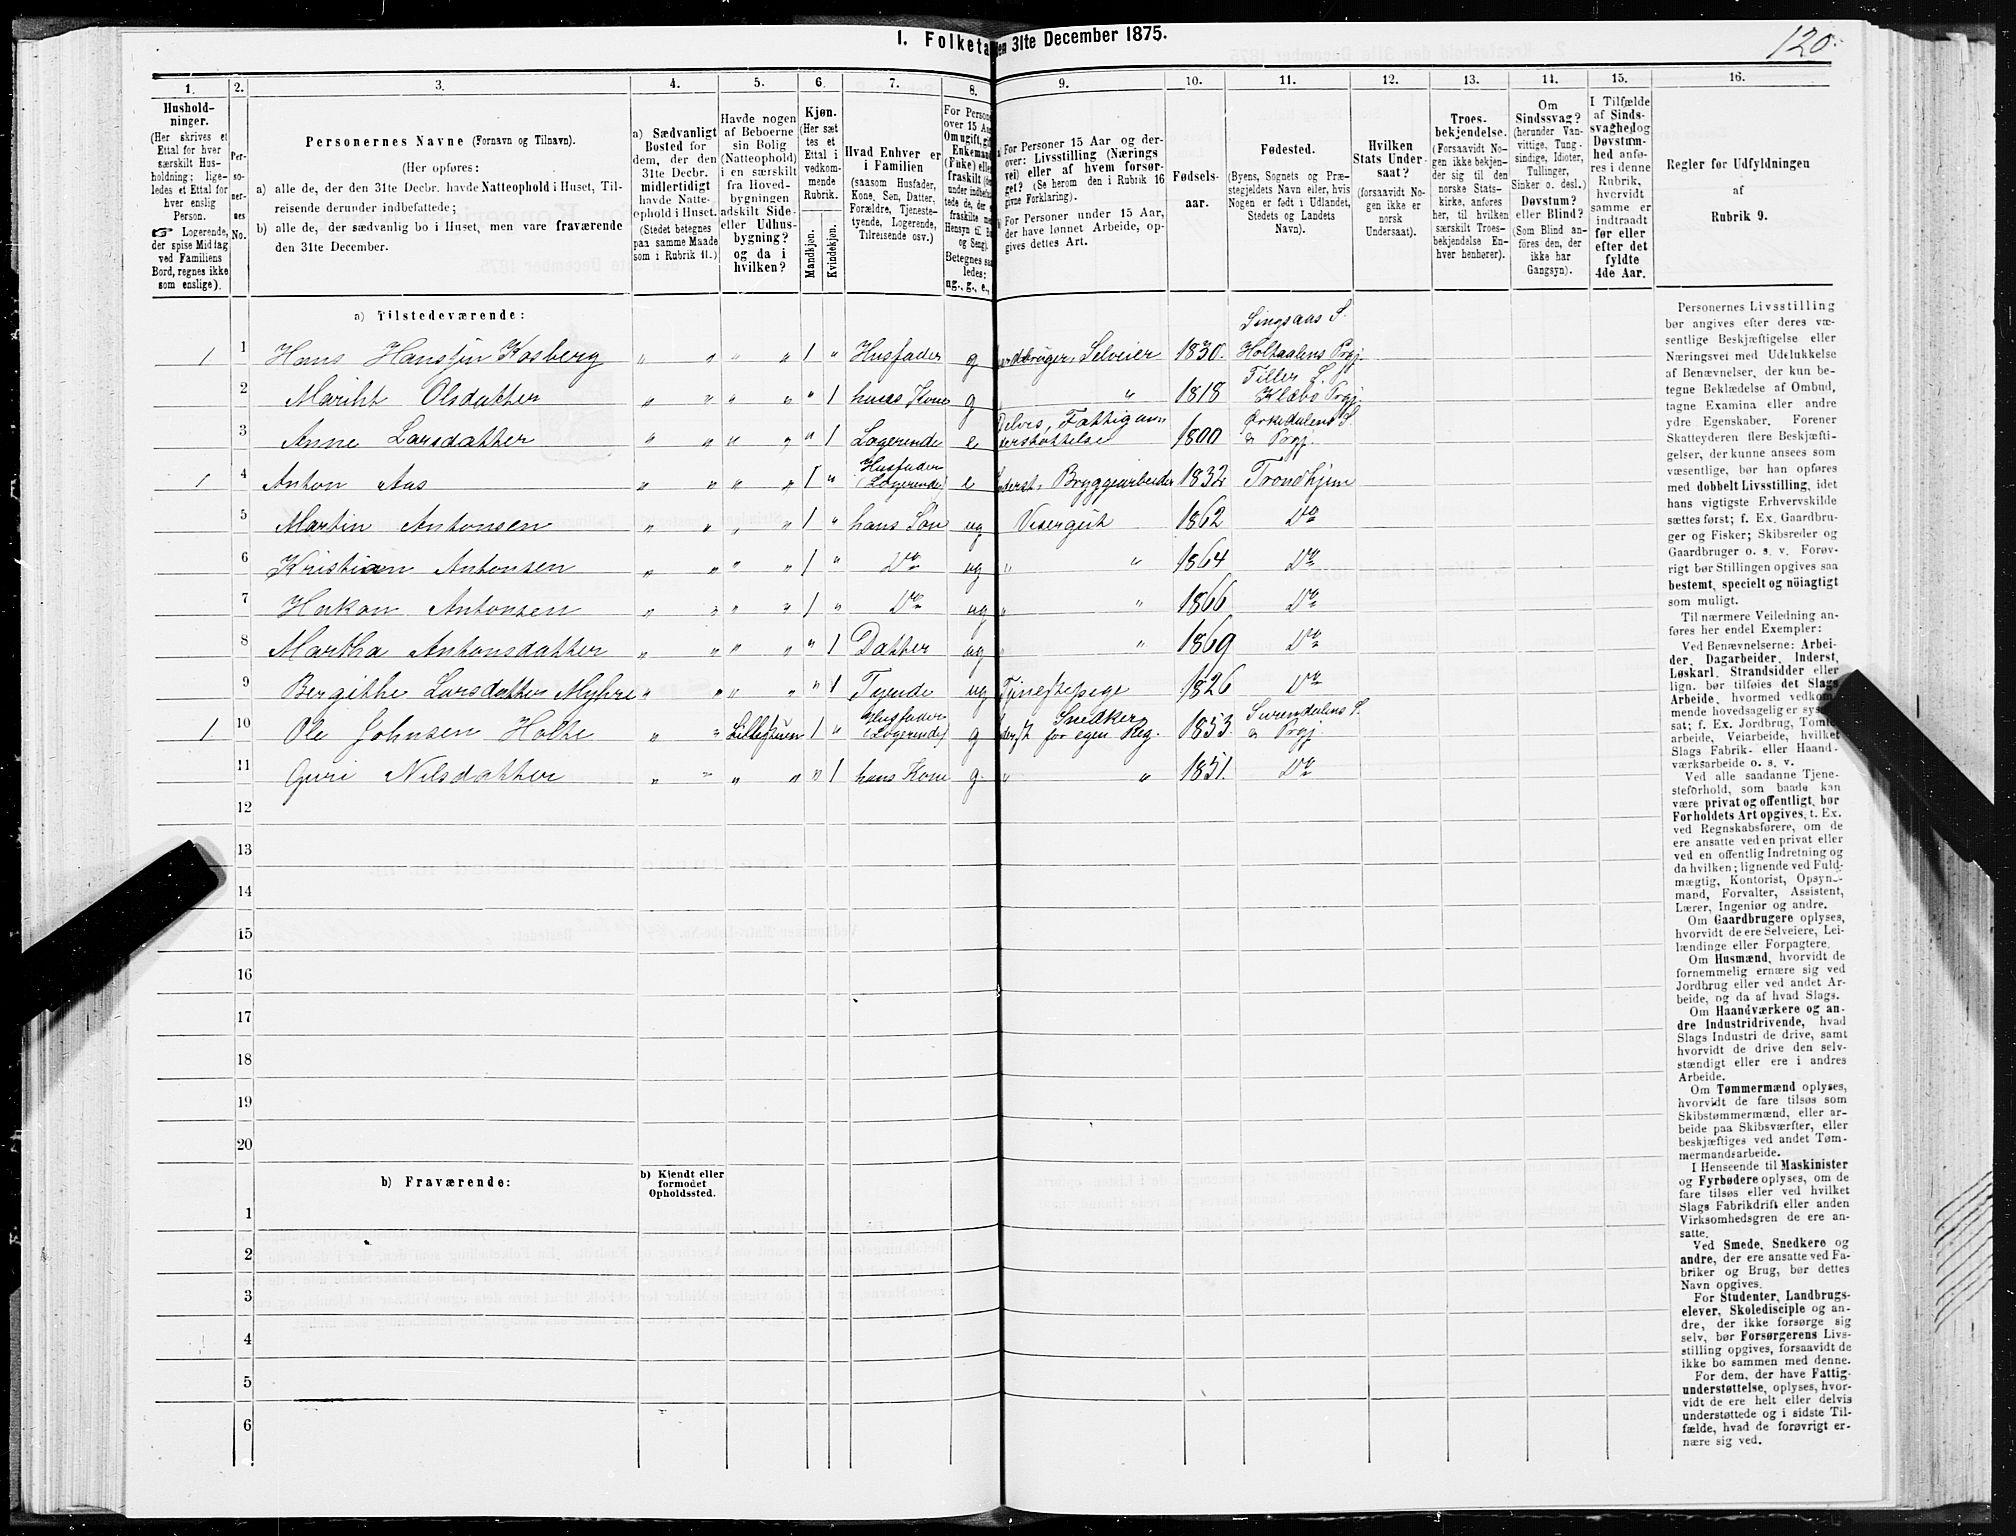 120.
I. Folketa
en 31te December 1875.
1. 2. 3. 4. 5. 6. 7. 8. 9. 10. 11. 12. 13. 14. 15. 16.
Hushold-
ninger.
(Her skrives et
Ettal for hver
særskilt Hus-
holdning; lige-
ledes et Ettal for
hver enslig
Person.
☞ Logerende,
der spise Middag
ved Familiens
Bord, regnes ikke
som enslige).
Per-
so-
ner-
nes
No.
Personernes Navne (Fornavn og Tilnavn).
(Her opføres:
a) alle de, der den 31te Decbr. havde Natteophold i Huset, Til-
reisende derunder indbefattede;
b) alle de, der sædvanlig bo i Huset, men vare fraværende
den 31te December.
a) Sædvanligt
Bosted for
dem, der den
31te Decbr.
midlertidigt
havde Natte-
ophold i Huset.
(Stedet betegnes
paa samme Maade
som i Rubrik 11.)
Havde nogen
af Beboerne
sin Bolig
(Natteophold)
i en særskilt
fra Hoved-
bygningen
adskilt Side-
eller Udhus-
bygning?
og da i
hvilken?
Kjøn.
(Her sæt-
tes et
Ettal i
vedkom-
mende
Rubrik.
Mandkjøn.
Kvindekjøn.
Hvad Enhver er
i Familien
(saasom Husfader,
Kone, Søn, Datter,
Forældre, Tjeneste-
tyende, Logerende,
Tilreisende osv.)
For Person
over 15 Aa
Om ugift, gif
Enkemand
(Fuke) elle
fraskilt (de
under indbefa
tede de, der e
fraskilte me
Hensyn til Bo
og Seng).
Betegnes saa
ledes:
ug., g., e.,
a For Personer 15 Aar og der-
over: Livsstilling (Nærings
vei) eller af hvem forsør-
get? (Se herom den i Rubrik 16
givne Forklaring).
b For Personer under 15 Aar,
der have lønnet Arbeide, op-
gives dettes Art.
Fødsels-
aar.
Fødested.
(Byens, Sognets og Præ-
stegjeldets Navn eller, hvis
Nogen er født i Udlandet,
Stedets og Landets
Navn).
Hvilken
Stats Under-
saat?
(forsaavidt No-
gen ikke er
norsk
Undersaat).
Troes-
bekjendelse.
(Forsaavidt No-
gen ikke bekjen-
der sig til den
norske Stats-
kirke, anføres
her, til hvilken
særskilt Troes-
bekjendelse En-
hver henhører).
Om
Sindssvag?
(herunder Van-
vittige, Tung-
sindige, Idioter,
Tullinger,
Sinker o. desl.)
Døvstum?
eller Blind?
(Som Blind an-
føres den, der
ikke har
Gangsyn).
I Tilfælde
af Sinds-
svaghed og
Døvstum-
hed anfø-
res i denne
Rubrik,
hvorvidt
samme er
indtraadt
før eller
efter det
fyldte
4de Aar.
Regler for Udfyldningen
af
Rubrik 9.
a) Tilstedeværende:
1 1 Hans Hansen Kosberg " " " " 1 " Husfader g ordbruger, Selveier 1830. Singsaas S. Holtaalens Prgj.
2 Mariht Olsdatter " " " " " 1 hans Kone g " 1818 Tiller S. Klæbo Prgj.
3 Anne Larsdatter " " " " " 1 Logerende e Delvis, Fattigun derstøttelse 1800 Ørkedalens S. & Prgj.
1 4 Anton Aas " " " " 1 " Husfader (Logerende) e nderst, Bryggearbeider 1832 Trondhjem
5 Martin Antonsen " " " " 1 " hans Søn ug Visergut 1862 Do
6 Kristian Antonsen " " " " 1 " Do ug " " 1864 Do
7 Hakon Antonsen " " " " 1 " Do ug " " 1866 Do
8 Martha Antonsdatter " " " " " 1 Datter ug " 1869 Do
9 Bergithe Larsdatter Myhre " " " " " 1 Tyende ug Tjenestepige 1826 Do
1 10 Ole Johnsen Holte " " Lillestuen 1 " Husfader (Logerende) g derst Snedker for egen Reg. 1853. Surendalens S. & Prgj.
11 Guri Nilsdatter " " " " " 1 hans Kone g. " " 1851. Do
12
13
14
15
16
17
18
19
20
b) Fraværende:
b) Kjendt eller
formodet
Opholdssted.
1
2
3
4
5
6
Personernes Livsstilling
bør angives efter deres væ-
sentlige Beskjæftigelse eller
Næringsvei med Udelukkelse
af Benævnelser, der kun be-
tegne Beklædelse af Ombud,
tagne Examina eller andre
ydre Egenskaber. Forener
Skatteyderen flere Beskjæfti-
gelser, der kunne ansees som
væsentlige, bør han opføres
med dobbelt Livsstilling, idet
hans vigtigste Erhvervskilde
sættes først; f. Ex. Gaardbru-
ger og Fisker; Skibsreder og
Gaardbruger o. s. v. Forøv-
rigt bør Stillingen opgives saa
bestemt, specielt og nöiagtigt
som muligt.
Til nærmere Veiledning an-
føres her endel Exempler:
Ved Benævnelserne: Arbei-
der, Dagarbeider, Inderst,
Løskarl, Strandsidder eller
lign. bør tilføies det Slags
Arbeide, hvormed vedkom-
mende hovedsagelig er sys
sat; f. Ex. Jordbrug, Tomte
arbeide, Veiarbeide, hvilket
Slags Fabrik- eller Haand-
værksarbeide o. s. v.
Ved alle saadanne Tjene-
steforhold, som baade kan
være privat og offentligt, bør
Forholdets Art opgives, t. Ex.
ved Regnskabsførere, om de
ere ansatte ved en privat eller
ved en offentlig Indretning og
da hvilken; lignende ved Fuld-
mægtig, Kontorist, Opsyns-
mand, Forvalter, Assistent,
Lærer, Ingeniør og andre.
Om Gaardbrugere oplyses,
hvorvidt de ere Selveiere, Lei-
lændinge eller Forpagtere.
Om Husmænd, hvorvidt de
fornemmelig ernære sig ved
Jordbrug eller ved andet Ar-
beide, og da af hvad Slags.
Om Haandværkere og an-
dre Industridrivende, hvad
Slags Industri de drive, samt
hvorvidt de drive den selv-
stændigt eller ere i andres
Arbeide.
Om Tømmermænd oplyses,
hvorvidt de fare tilsøs som
Skibstømmermænd, eller ar-
beide paa Skibsværfter, eller
beskjæftiges ved andet Tøm-
mermandsarbeide.
I Henseende til Maskinister
og Fyrbødere oplyses, om de
fare tilsøs eller ved hvilket
Slags Fabrikdrift eller anden
Virksomhedsgren de ere an-
satte.
Ved Smede, Snedkere og
andre, der ere ansatte ved Fa-
briker og Brug, bør dettes
Navn opgives.
For Studenter, Landbrugs-
elever, Skoledisciple og an-
dre, der ikke forsørge sig
selv, bør Forsørgerens Livs-
stilling opgives, forsaavidt de
ikke bo sammen med denne.
For dem, der have Fattig-
understøttelse, oplyses, hvor-
vidt de ere helt eller delvis
understøttede og i sidste Til-
fælde, hvad de forøvrigt er-
nære sig ved.